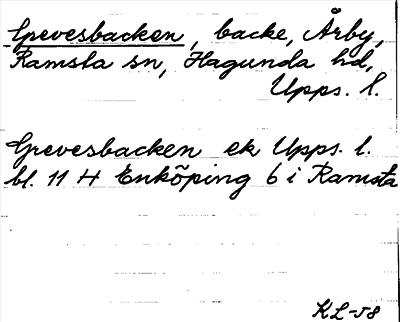 Grevesbacken, backe, Årby,
Ramsta sn, Hagunda hd,
Upps. l.
Grevesbacken ek Upps. l.
bl. 11 H Enköping 6 i Ramsta
KL-58